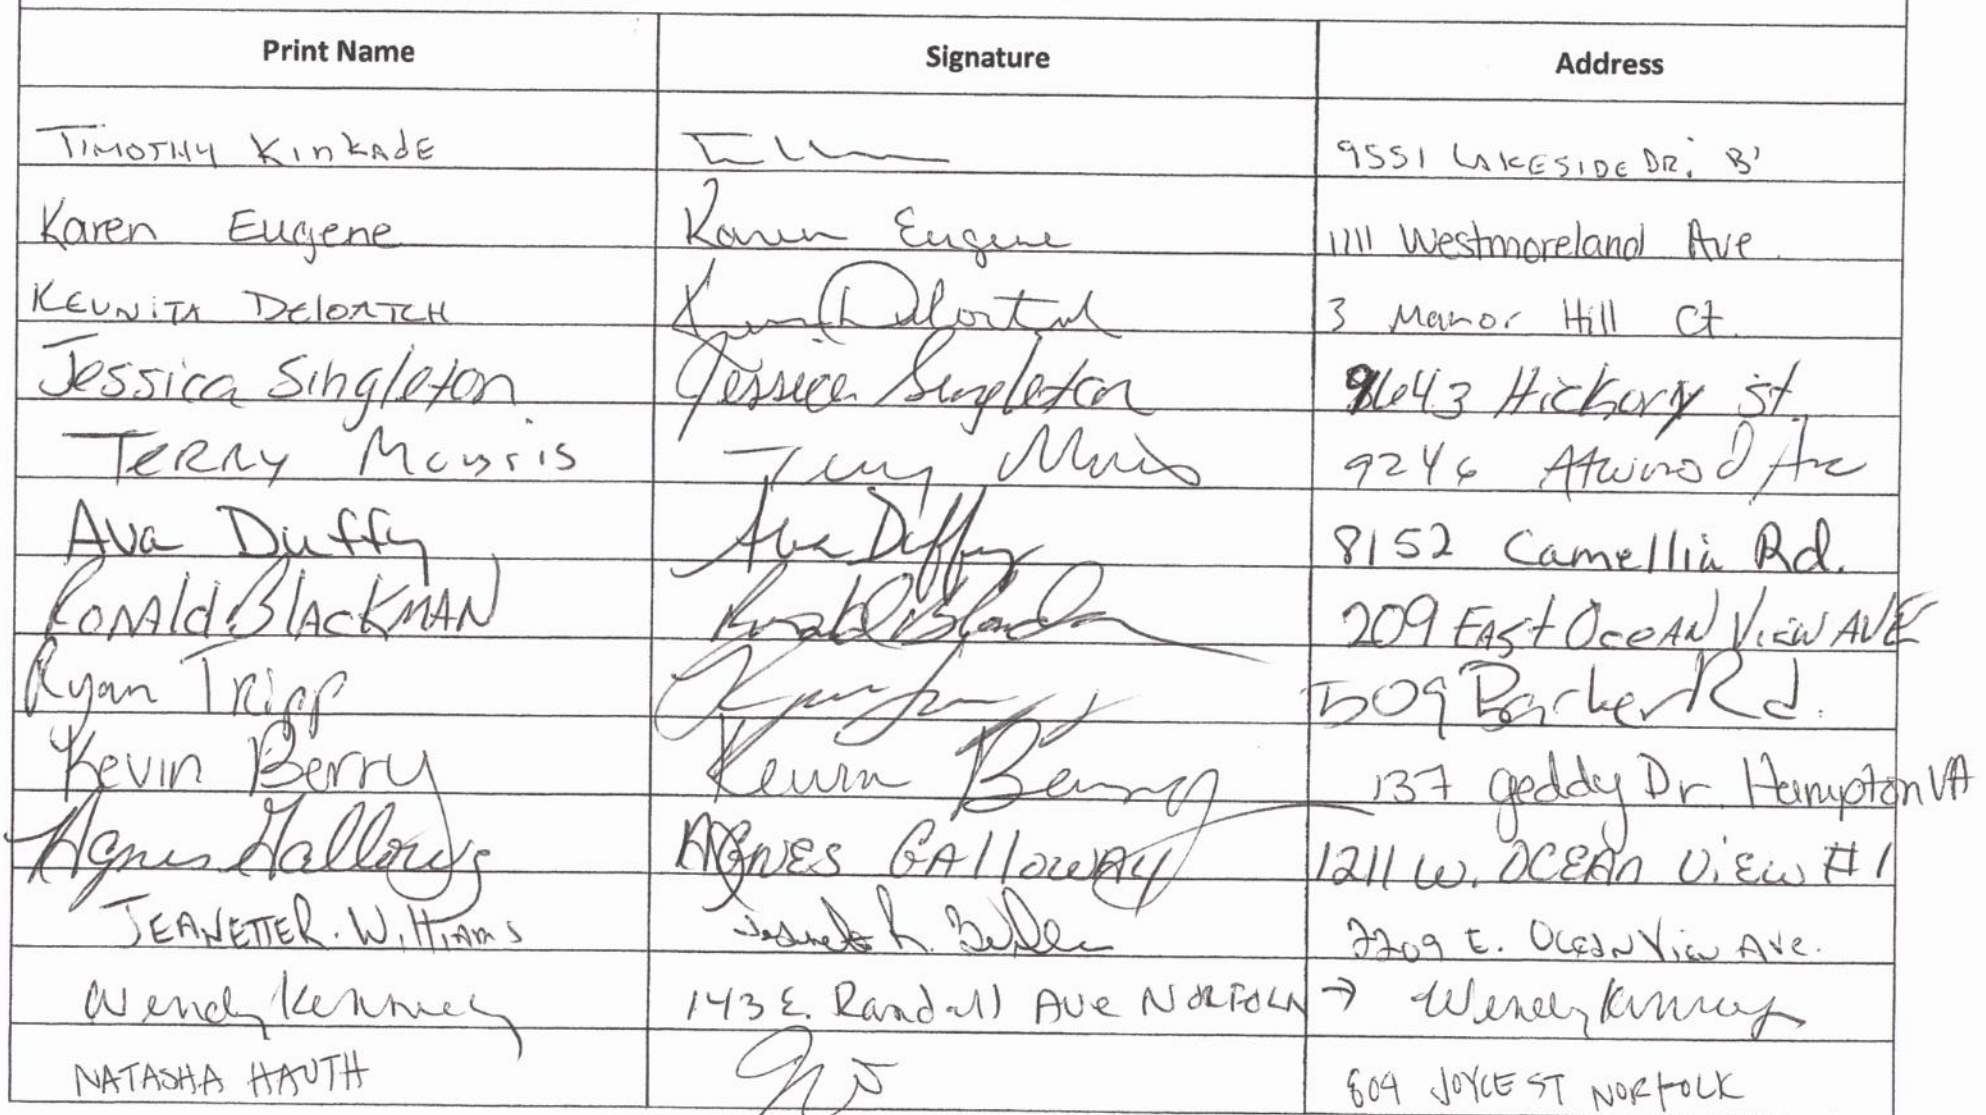 Print Name Signature Address
TIMOTHY KINKADE 9551 LAKESIDE DR, B'
Karen Eugene Karen Eugene 1111 Westmoreland Ave.
KEUNITA DELOATCH Deloatch 3 Manor Hill Ct.
Jessica Singleton Jessica Singleton 9643 Hickory St.
TERRY Morris Terry Morris 9246 Atwood Ave
Ava Duffy Ava Duffy 8152 Camellia Rd.
RONAld BLACKMAN Ronald Blackman 209 EAST OCEAN VIEW AVE
Ryan Tripp 509 Barker Rd.
Kevin Berry Kevin Berry 137 geddy Dr. Hampton VA
Agnes Galloway AGNES GAlloWAY 1211 W. OCEAN ViEW #1
JEANETTE R. WilliAMS Jeanette R. E. OCEAN View AVe.
Wendy Kenney 143 E. Randall AVe NORFOLK → Wendy Kenney
NATASHA HAUTH 809 JOYCE ST NORFOLK